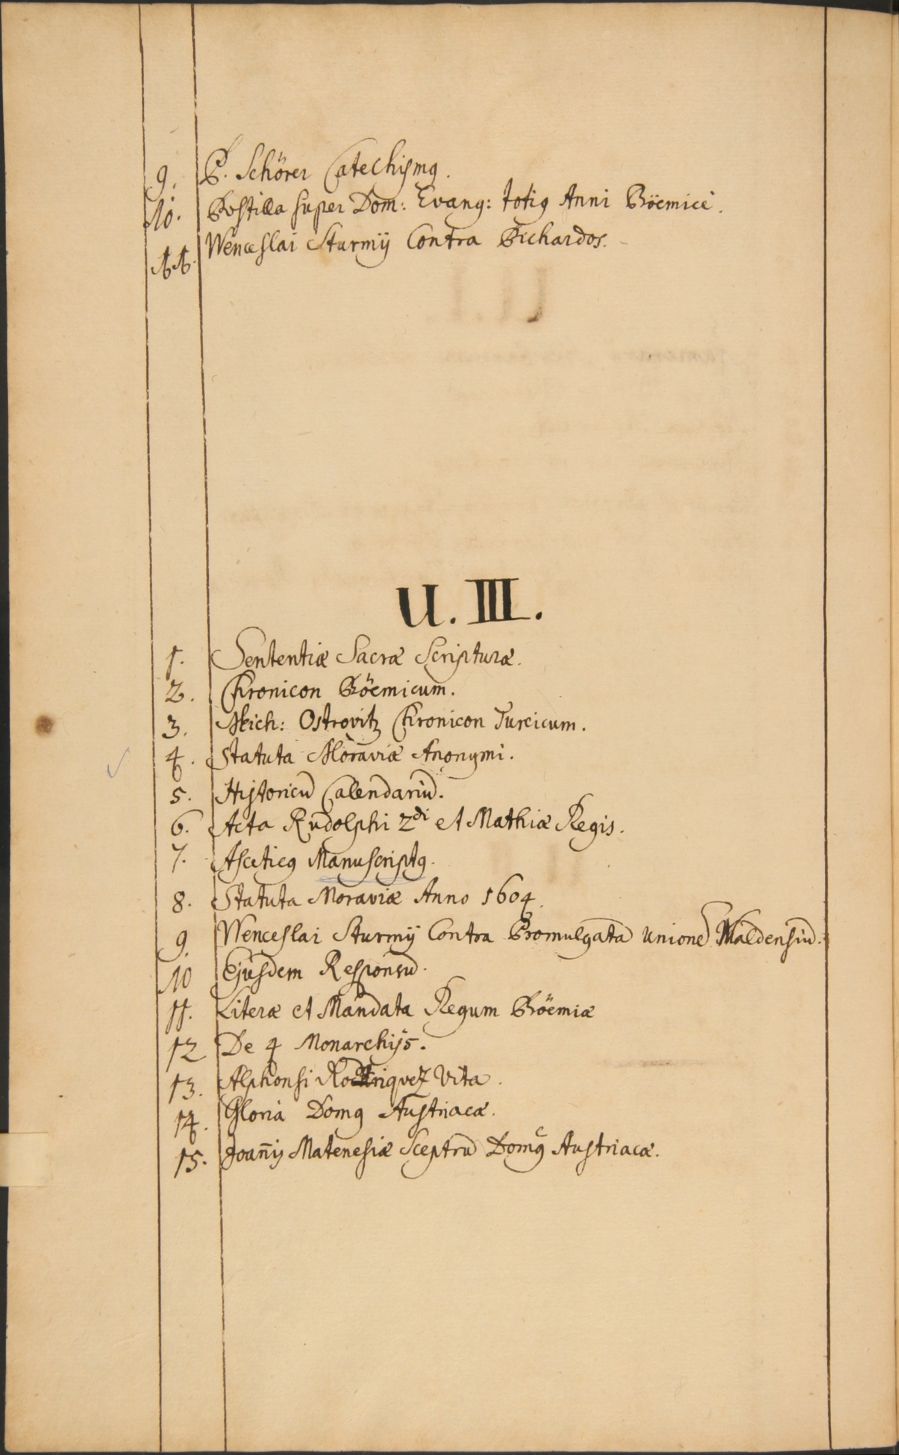 9. P. Schörer Catechismg.
10. Postilla super Dom: Evang: totig Anni Böemici.
11. Wenceslai Sturmij Contra Pichardos.
U. III.
1. Sententiæ Sacræ Scripturæ.
2. Chronicon Böemicum.
3. Mich: Ostrovitz Chronicon Turcicum.
4. Statuta Moraviæ Anonymi.
5. Historicũ Calendariũ.
6. Acta Rudolphi 2di et Mathiæ Regis.
7. Asceticg Manuscriptg.
8. Statuta Moraviæ Anno 1604.
9. Wenceslai Sturmij Contra Promulgatã Unionẽ Waldensiũ.
10 Ejusdem Responsũ.
11. Literæ et Mandata Regum Böemiæ
12 De 4 Monarchijs.
13. Alphonsi Rodriqvez Vita.
14. Gloria Domg Austriacæ.
15. Joañij Matenesiæ Sceptrũ Domg Austriacæ.